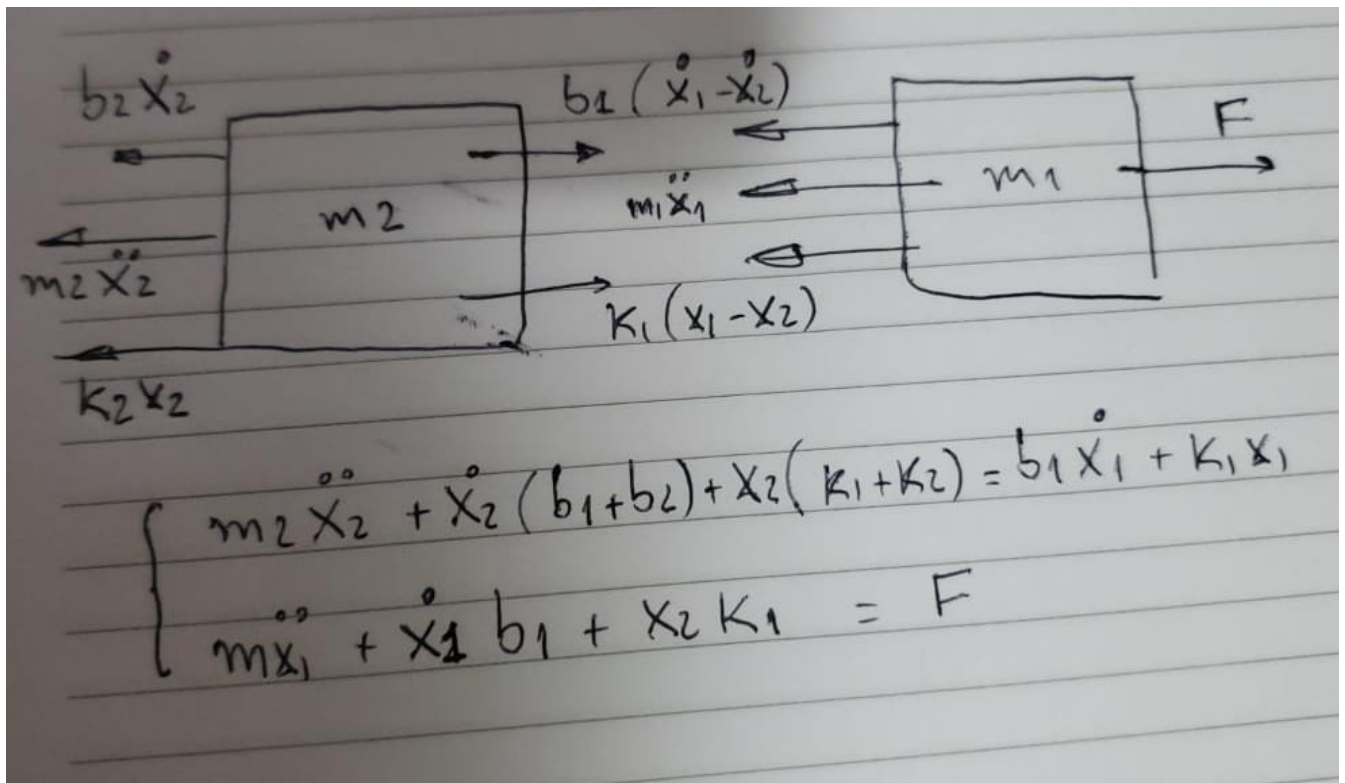 b2 ẋ2
b1 (ẋ1-ẋ2)
F
m2
m1ẍ1
m1
m2 ẍ2
K1 (x1-x2)
K2 x2
m2 ẍ2 + ẋ2 (b1+b2) + x2 (K1+K2) = b1 ẋ1 + K1 x1
mẍ1 + ẋ1 b1 + x2 K1 = F